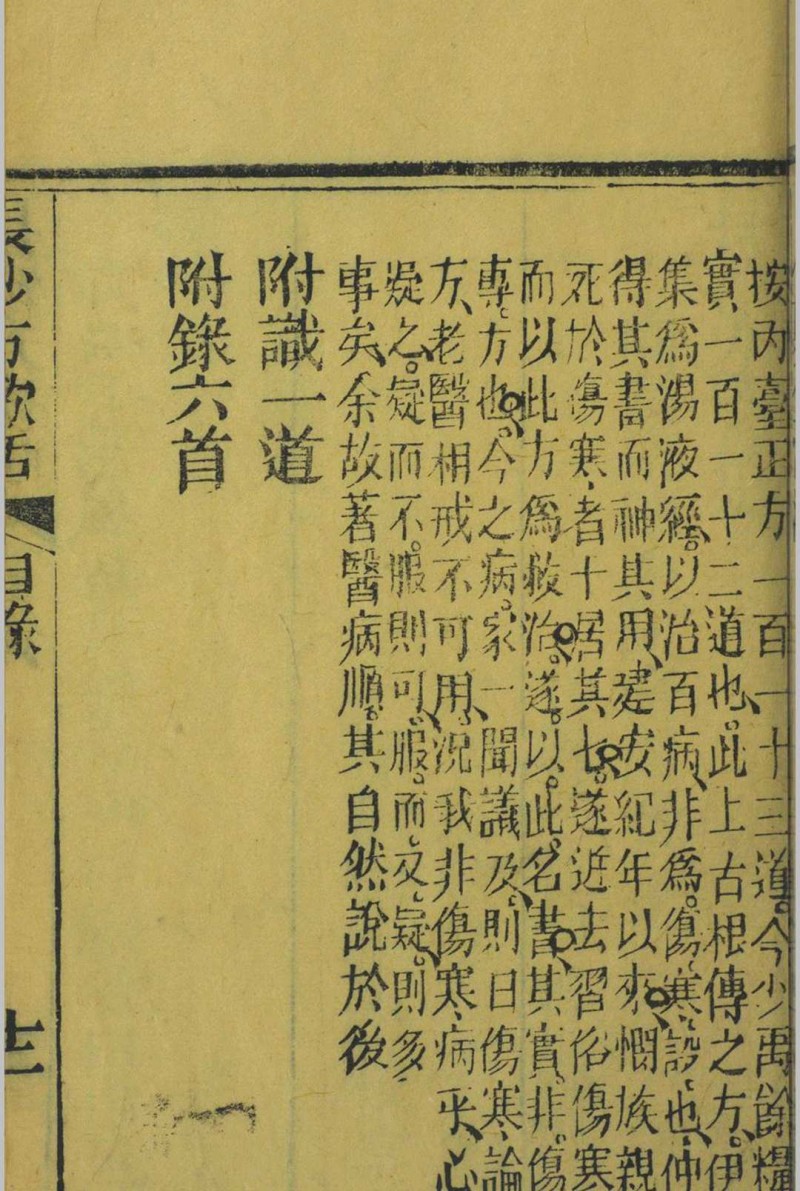 按內臺正方一百一十三道今少禹餘糧
實一百一十二道也此上古根傳之方伊
集爲湯液經以治百病非爲傷寒設也仲
得其書而神其用建安紀年以來憫族親
死於傷寒者十居其七遂近去習俗傷寒
而以此方爲救治遂以此名書其實非傷
專方也今之病家一聞議及則曰傷寒論
方老醫相戒不可用況我非傷寒病乎心
疑之疑而不服則可服而又疑則多
事矣余故著醫病順其自然說於後
附識一道
附錄六首
長沙方歌括
目錄
十二